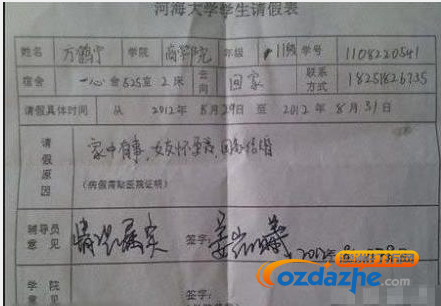 河海大学学生请假表
姓名 万鹤宁 学院 商学院 年级 11级 学号 1108220541
宿舍 一心舍525室2床 去向 回家 联系方式 18251826735
请假具体时间 从 2012年8月29日 至 2012年8月31日
请假原因
家中有事，女友怀孕，回家结婚
（病假需贴医院证明）
辅导员意见 情况属实 签字： 2012年8月28日
ozdazhe.com
学院 签字：